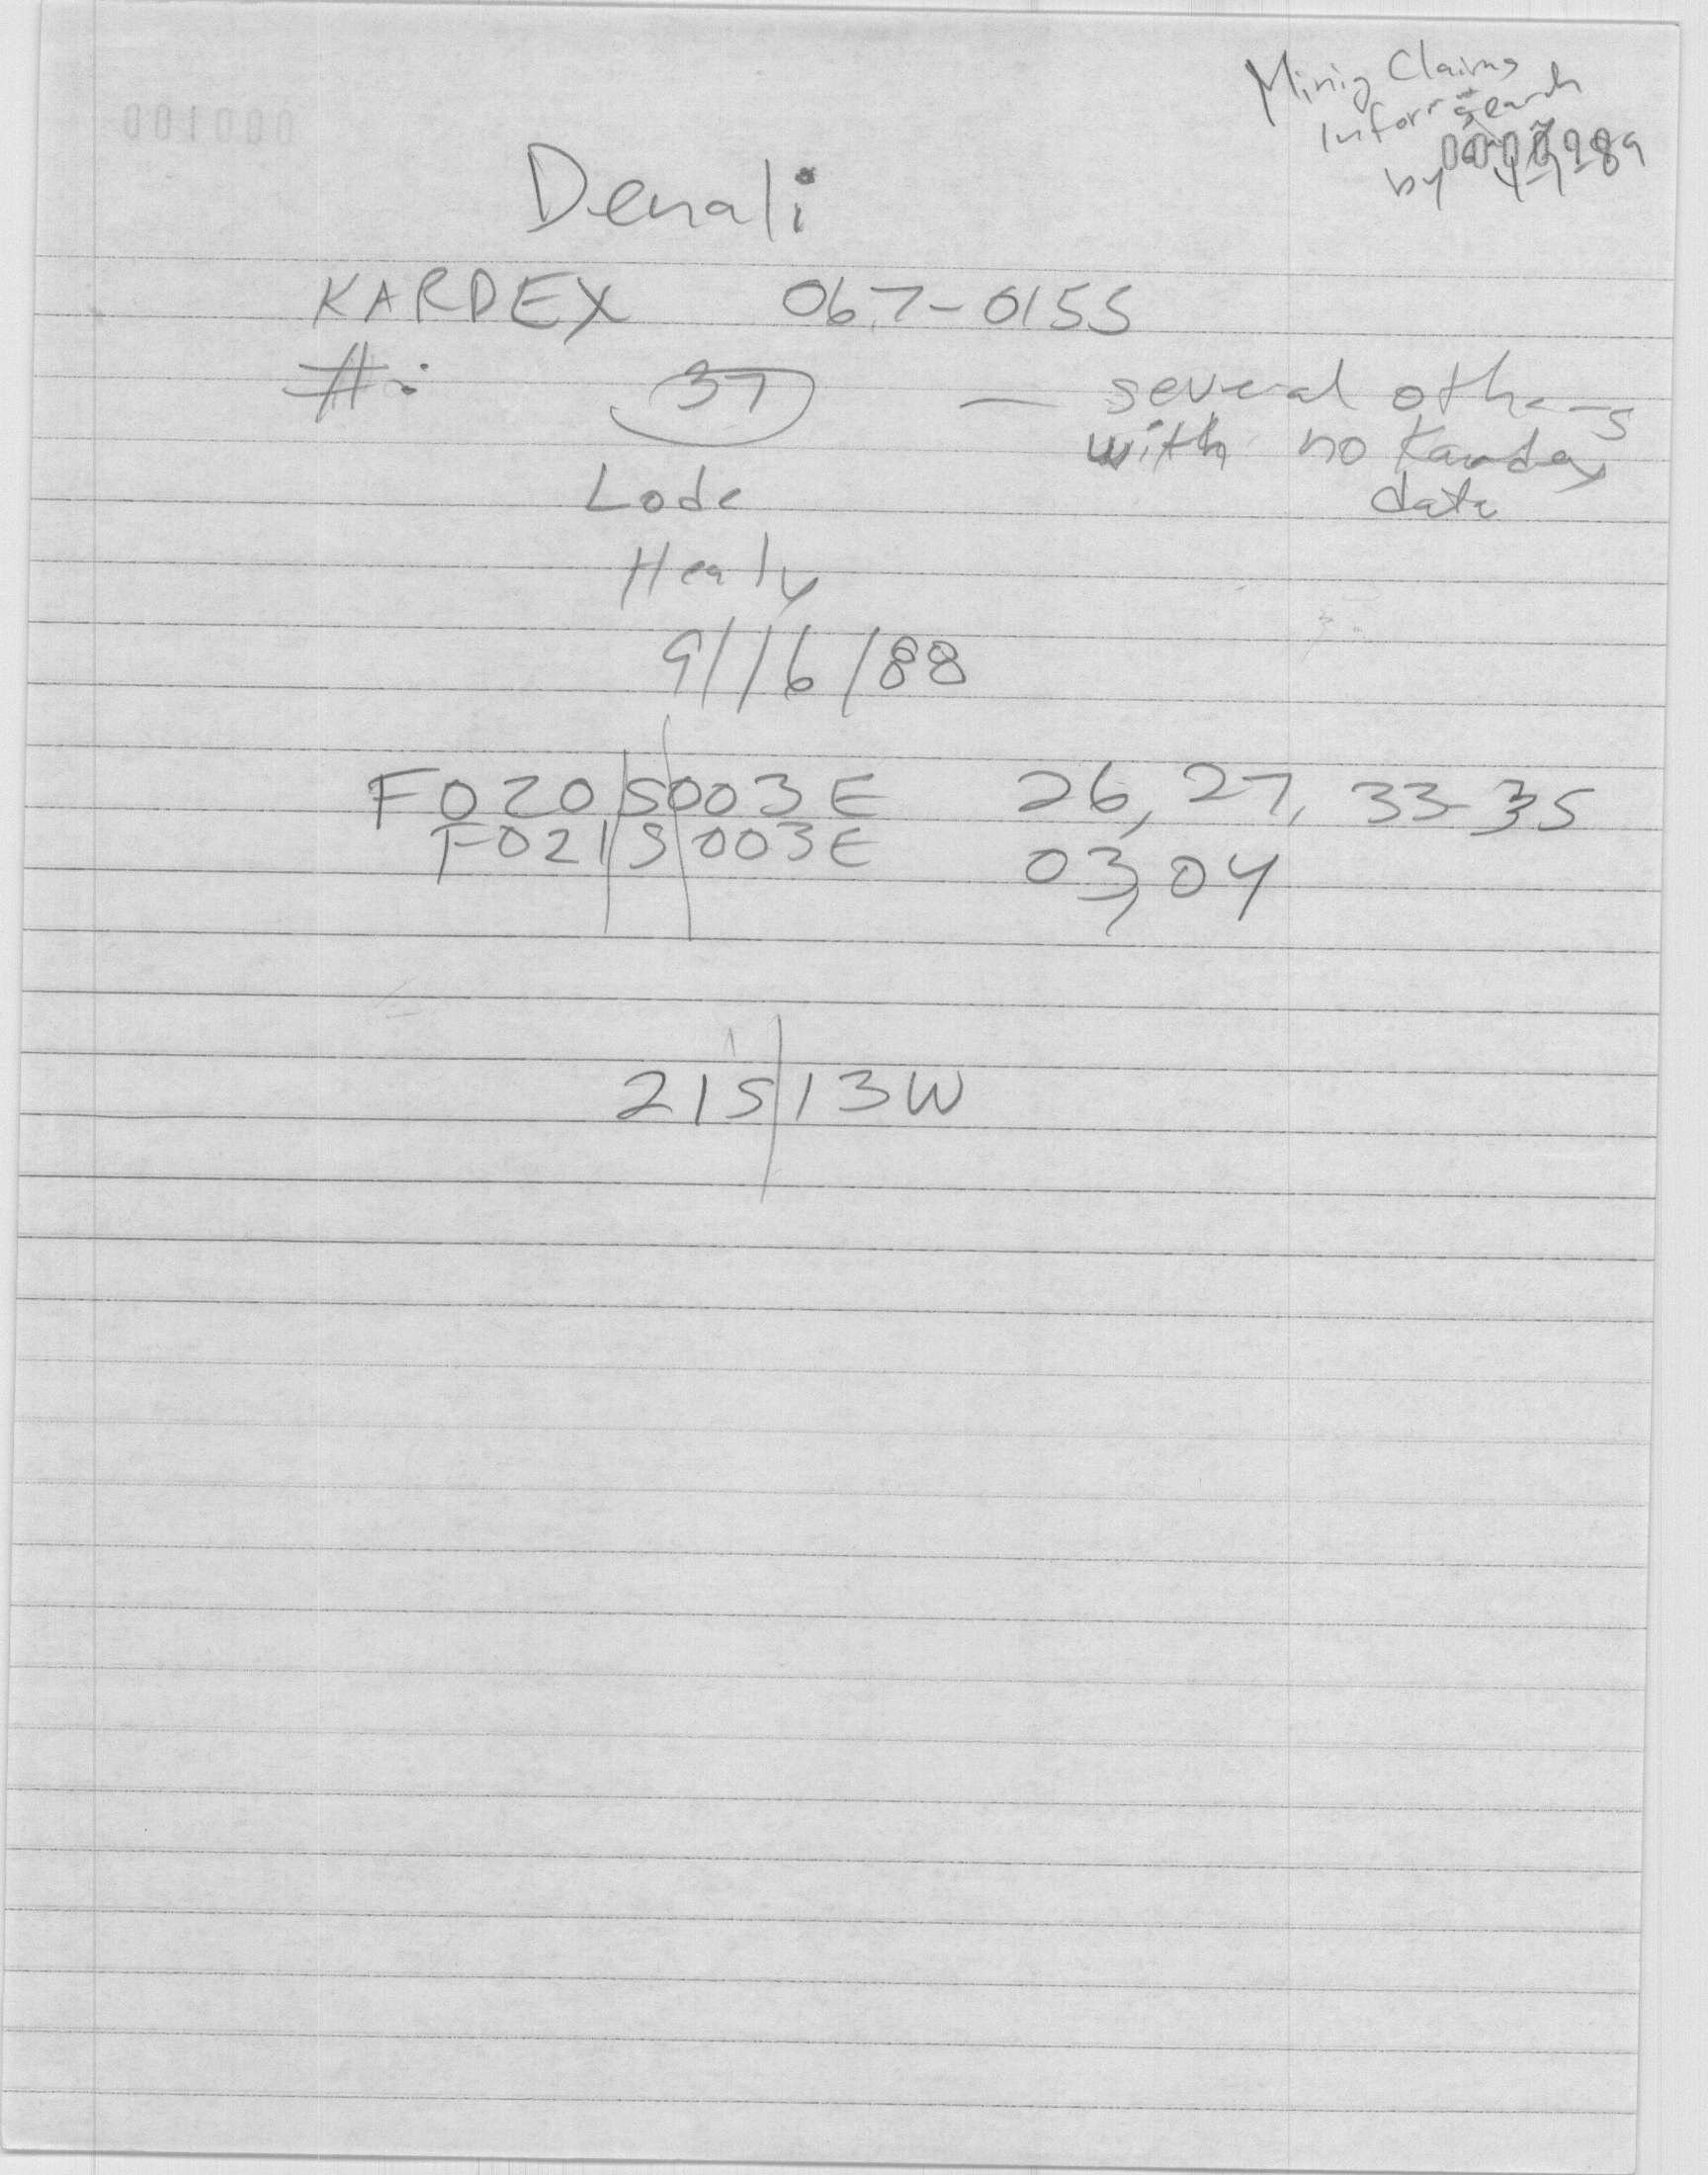 Mining Claims
Inform Search
by
Denali
KARDEX 067-0155
#: 37 — several others
with no Kardex
data
Lode
Healy
9/16/88
F020|S|003E 26, 27, 33-35
F021|S|003E 03, 04
21S|13W